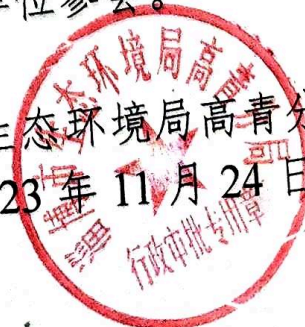 单位参会。
生态环境局高青分
23年11月24日
淄博市生态环境局高青分局
行政审批专用章